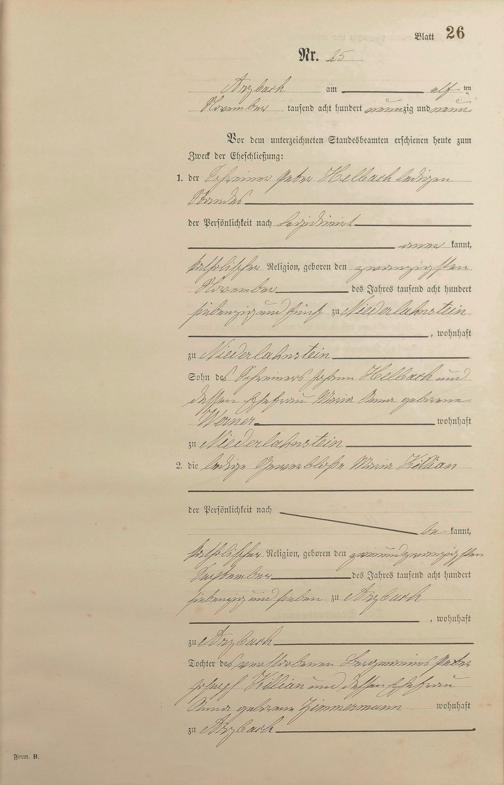 Blatt 26
Nr. 25
Arzbach am elf ten
November tausend acht hundert neunzig und neun
Vor dem unterzeichneten Standesbeamten erschienen heute zum
Zweck der Eheschließung:
1. der Schreiner Peter Helbach ledigen
Standes
der Persönlichkeit nach legitimirt
aner kannt,
katholischer Religion, geboren den zwanzigsten
November des Jahres tausend acht hundert
siebenzig und fünf zu Niederlahnstein
, wohnhaft
zu Niederlahnstein
Sohn des Schreiners Johann Helbach und
dessen Ehefrau Maria Anna geborene
Werner wohnhaft
zu Niederlahnstein
2. die ledige Gewerblose Maria Killian
der Persönlichkeit nach
be kannt,
katholischer Religion, geboren den zweiundzwanzigsten
September des Jahres tausend acht hundert
siebenzig und sieben zu Arzbach
, wohnhaft
zu Arzbach
Tochter des verstorbenen Bergmanns Peter
Josef Killian und dessen Ehefrau
Anna geborene Zimmermann wohnhaft
zu Arzbach
Form. B.